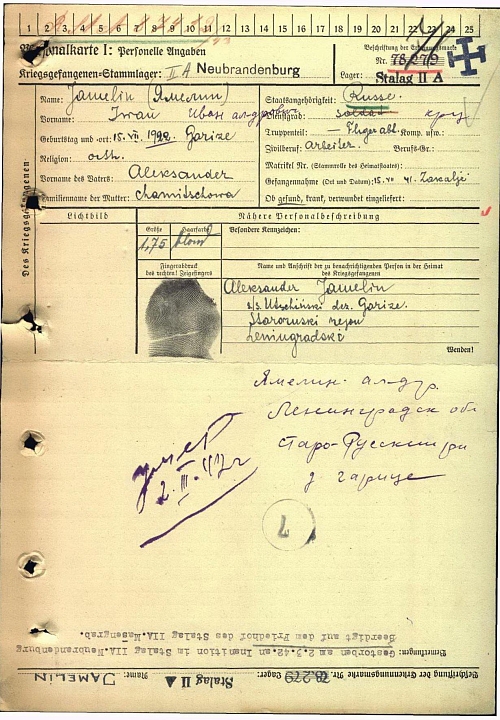 1 2 3 4 5 6 7 8 9 10 11 12 13 14 15 16 17 18 19 20 21 22 23 24 25
Personalkarte I: Personelle Angaben
Kriegsgefangenen-Stammlager: II A Neubrandenburg
Beschriftung der Erkennungsmarke
Nr. 78279
Lager: Stalag II A
Des Kriegsgefangenen
Name: Jamelin (Ямелин)
Vorname: Iwan Иван
Geburtstag und -ort: 15. VII. Garize
Religion: orth.
Vorname des Vaters: Aleksander
Familienname der Mutter: Chamitschowa
Staatsangehörigkeit: Russe
Dienstgrad: Soldat
Truppenteil: Komp. usw.:
Zivilberuf: Arbeiter Berufs-Gr.:
Matrikel Nr. (Stammrolle des Heimatstaates):
Gefangennahme (Ort und Datum): 15. VII 41.
Ob gesund, krank, verwundet eingeliefert:
Lichtbild
Nähere Personalbeschreibung
Größe Haarfarbe Besondere Kennzeichen:
1,75 blond
Fingerabdruck
des rechten! Zeigefingers
Name und Anschrift der zu benachrichtigenden Person in der Heimat
des Kriegsgefangenen
Aleksander Jamelin
Garize
rejon
Leningradski
Wenden!
Ямелин
Ленинградск об
Старо-Русский
д Гарице
умер
2. III. 42 г
7
Beerdigt auf dem Friedhof des Stalag IIA. Massengrab.
Bemerkungen: Gestorben am 2.3.42. an Inanition in Stalag IIA Neubrandenburg
Beschriftung der Erkennungsmarke Nr. 78279 Lager: Stalag II A Name: JAMELIN